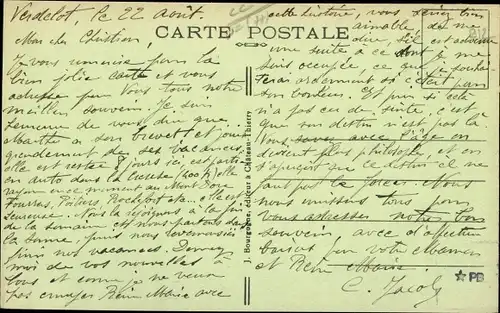 Verdelot, le 22 Août.
Mon cher Christian,
Je vous remercie pour la
très jolie carte et vous
adresse pour vous tous notre
meilleur souvenir. Je suis
heureuse de vous dire que
Marthe a son brevet et jouit
grandement de ses vacances.
elle est restée 8 jours ici, est partie
en auto dans la Creuse (400 k) elle
rayonne en ce moment au Mont Dore
Royat, Rochefort etc... elle est
heureuse. Nous la rejoignons à la fin
de la semaine et nous partons
la bonne, puis nous reviendrons
finir nos vacances. Donnez
moi de vos nouvelles à
tous et comme je ne veux
pas ennuyer Reine Marie avec
CARTE POSTALE
J. Bourgogne, éditeur à Château-Thierry
cette histoire, vous seriez bien
aimable de me
dire s'il est advenu
une suite à ce dont je me
suis occupée, ce que je souhai-
terais ardemment si c'était pour
son bonheur. Et puis si cela
n'a pas eu de suite, c'est
que son destin n'est pas là
Vous savez avec l'âge on
devient plus philosophe, et on
s'aperçoit que le destin il ne
faut pas le forcer. Nous
nous unissons tous pour
vous adresser notre bon
souvenir avec d'affectueux
baisers pour votre Maman
et Reine Marie.
C. Jacob
★PB